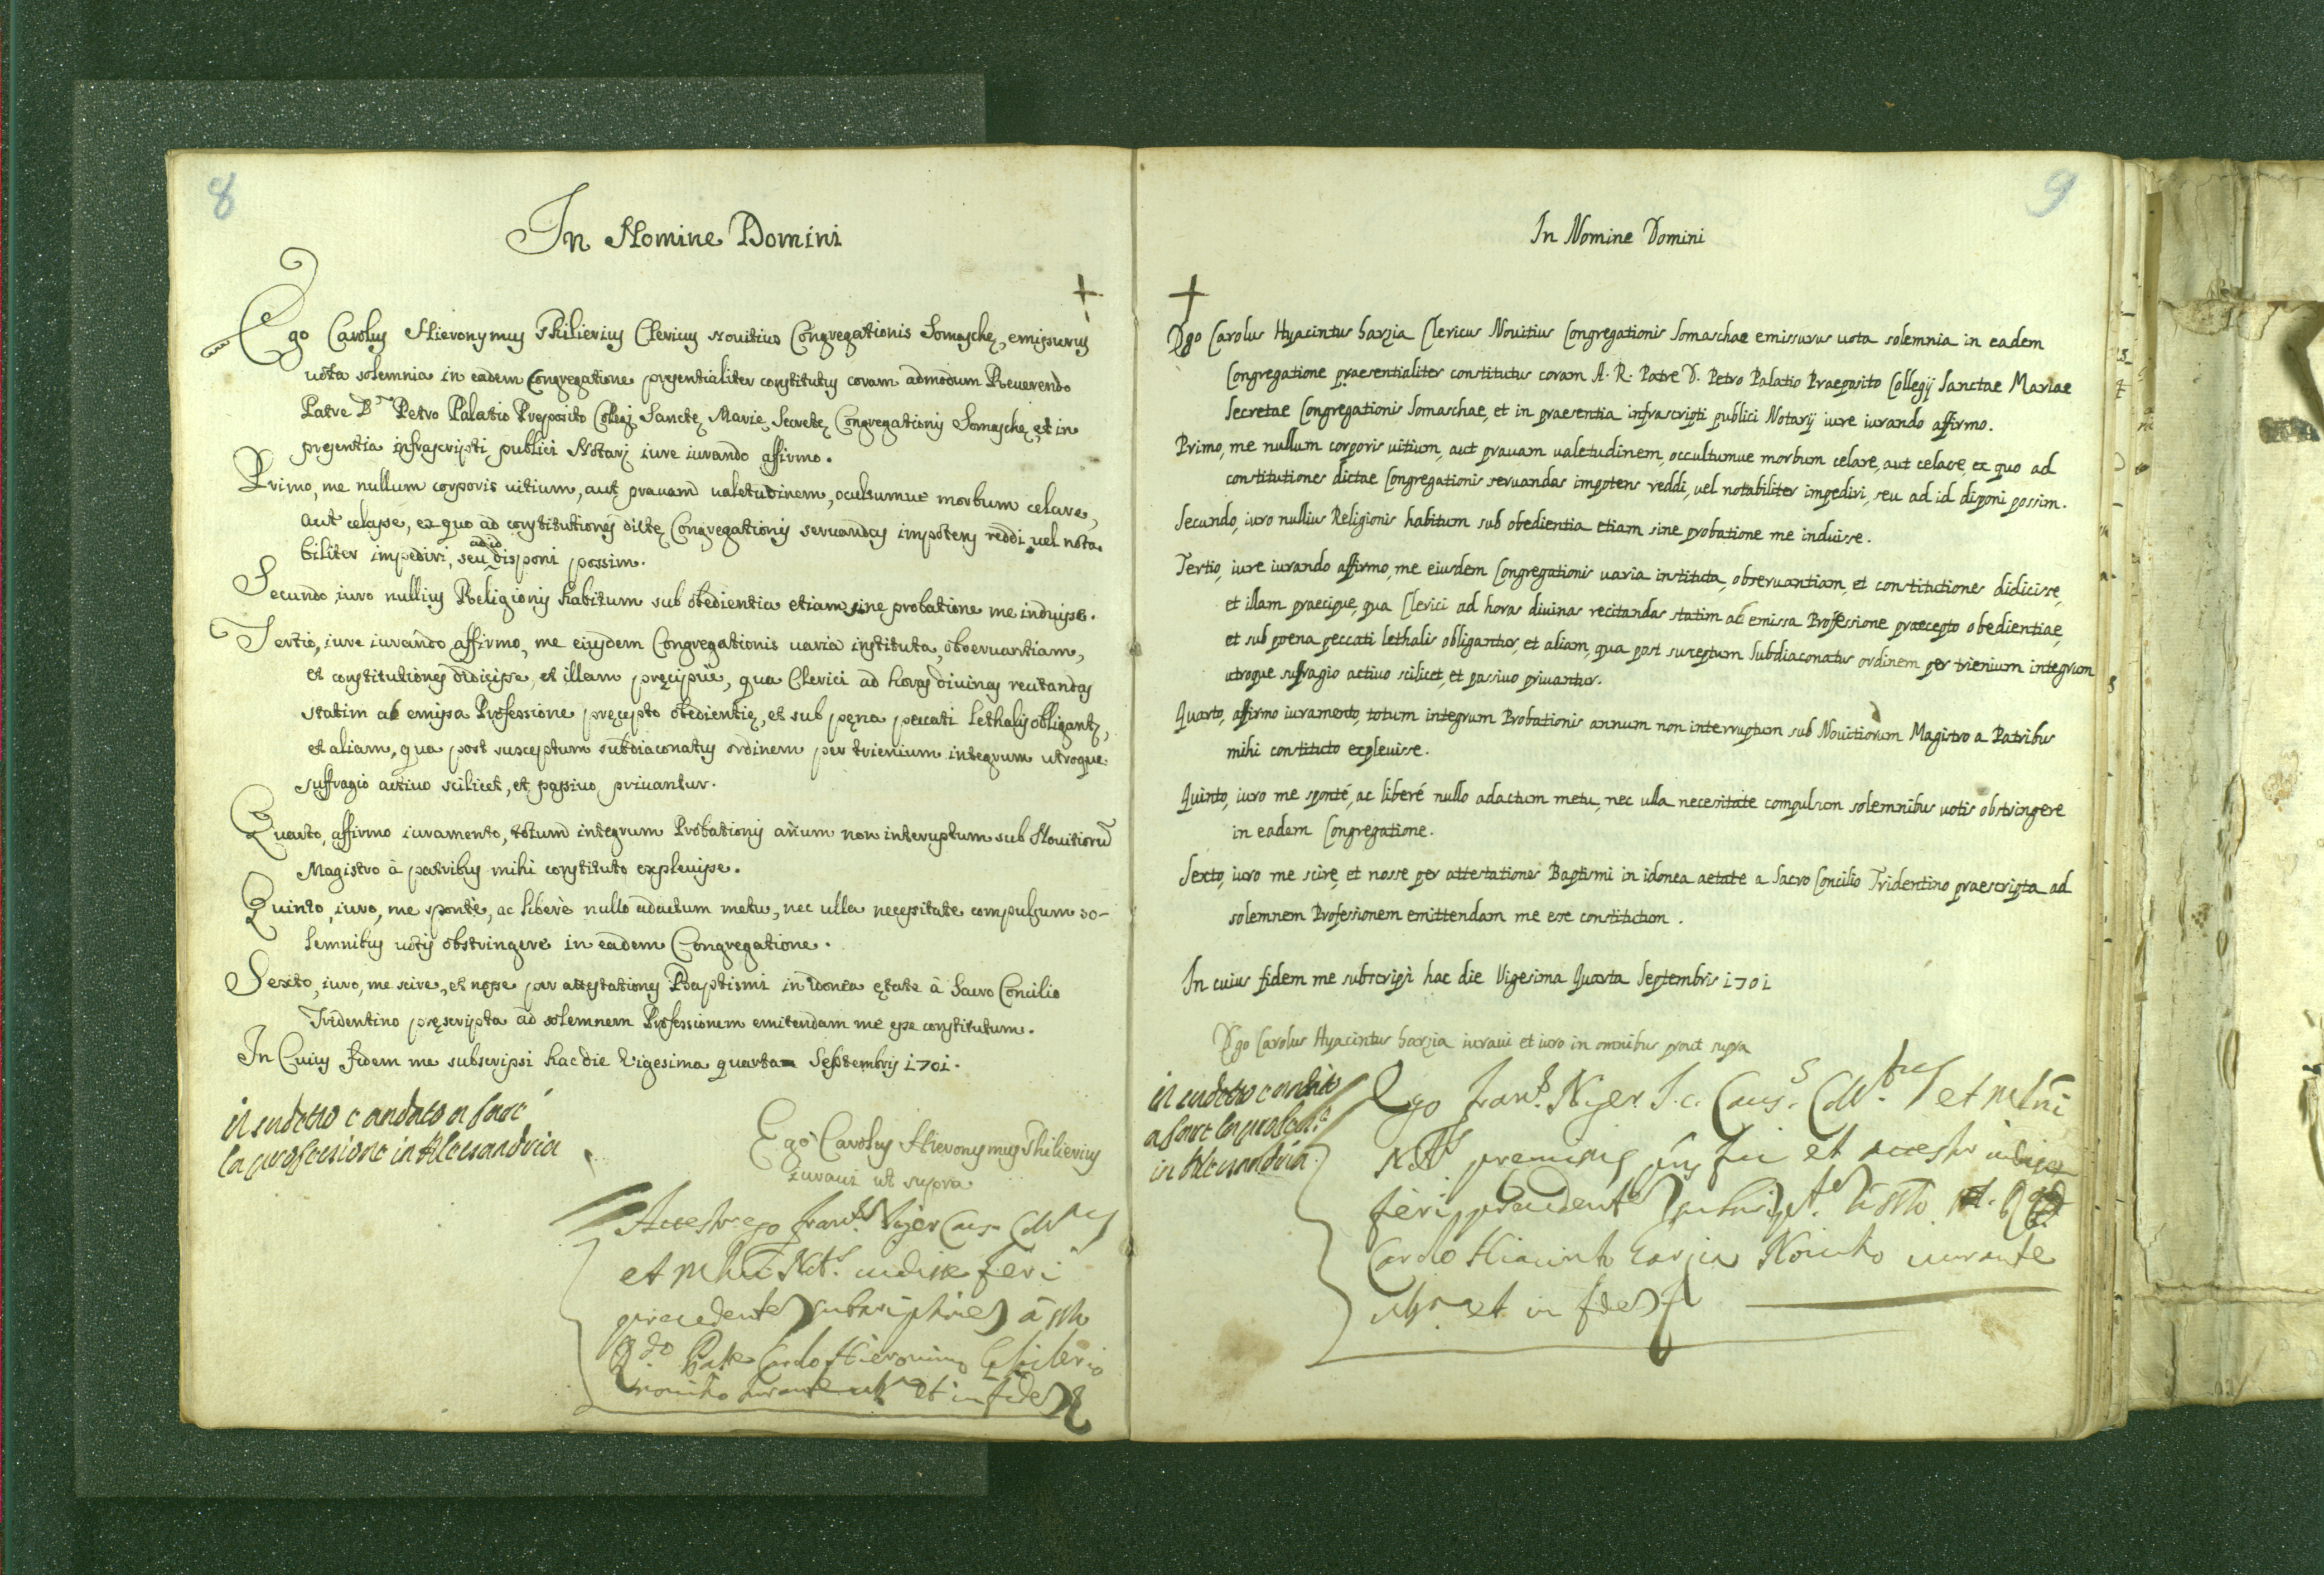 8
In Nomine Domini
+
Ego Carolus Hieronymus Philierius Clericus Nouitius Congregationis Somaschę, emissurus
uota solemnia in eadem Congregatione presentialiter constitutus coram admodum Reuerendo
Patre D. Petro Palatio Preposito Collegj Sanctę Marię Secretę Congregationis Somaschę, et in
presentia infrascripti publici Notarj iure iurando affirmo.
Primo, me nullum corporis uitium, aut prauam ualetudinem, ocultumue morbum celare,
aut celasse, ex quo ad constitutiones dictę Congregationis seruandas impotens reddi uel nota
biliter impediri, seu ad id disponi possim.
Secundo iuro nullius Religionis habitum sub obedientia etiam sine probatione me induisse.
Tertio, iure iurando affirmo, me eiusdem Congregationis uaria instituta, obseruantiam,
et constitutiones didicisse, et illam pręcipuè, qua Clerici ad horas diuinas recitandas
statim ab emissa Professione pręcepto obedientię, et sub pęna peccati lethalis obligant,
et aliam, qua post susceptum subdiaconatus ordinem per trienium integrum utroque
suffragio actiuo scilicet, et passiuo priuantur.
Quarto, affirmo iuramento, totum integrum Probationis anum non interuptum sub Nouitiorū
Magistro à patribus mihi constituto expleuisse.
Quinto, iuro, me spontè, ac liberè nullo adactum metu, nec ulla necessitate compulsum so-
lemnibus uotis obstringere in eadem Congregatione.
Sexto, iuro, me scire, et nosse per attestationes Baptismi in idonea ętate à Sacro Concilio
Tridentino pręscripta ad solemnem Professionem emitendam me esse constitutum.
In Cuius fidem me subscripsi hac die Vigesima quarta Septembris 1701.
il sudetto è andato a fare
la professione in Alessandria
Ego Carolus Hieronymus Philierius
Iuraui ut supra
ego Niger
et audisse fieri
precedentes subscriptiones à
Carolo Hieronimo
nouitio iurante et in fidem
9
In Nomine Domini
+
Ego Carolus Hyacintus Sarzia Clericus Nouitius Congregationis Somaschae emissurus uota solemnia in eadem
Congregatione praesentialiter constitutus coram A. R. Patre D. Petro Palatio Praeposito Collegij Sanctae Mariae
Secretae Congregationis Somaschae, et in praesentia infrascripti publici Notarij iure iurando affirmo.
Primo, me nullum corporis uitium, aut prauam ualetudinem, occultumue morbum celare, aut celasse, ex quo ad
constitutiones dictae Congregationis seruandas impotens reddi, uel notabiliter impediri, seu ad id disponi possim.
Secundo, iuro nullius Religionis habitum sub obedientia etiam sine probatione me induisse.
Tertio, iure iurando affirmo, me eiusdem Congregationis uaria instituta, obseruantiam, et constitutiones didicisse,
et illam praecipue, qua Clerici ad horas diuinas recitandas statim ab emissa Professione praecepto obedientiae,
et sub poena peccati lethalis obligantur, et aliam, qua post susceptum Subdiaconatus ordinem per trienium integrum
utroque suffragio actiuo scilicet, et passiuo priuantur.
Quarto, affirmo iuramento, totum integrum Probationis annum non interruptum sub Nouitiorum Magistro a Patribus
mihi constituto expleuisse.
Quinto, iuro me sponté, ac liberé nullo adactum metu, nec ulla necessitate compulsum solemnibus uotis obstringere
in eadem Congregatione.
Sexto, iuro me scire, et nosse per attestationes Baptismi in idonea aetate a Sacro Concilio Tridentino praescripta ad
solemnem Professionem emittendam me esse constitutum.
In cuius fidem me subscripsi hac die Vigesima Quarta Septembris 1701
Ego Carolus Hyacintus Sarzia iuraui et iuro in omnibus prout supra
il sudetto è andato
a fare la profess.
in Alessandria
Ego Niger
fui et
fieri
Carolo Hiacinto Sarzia Nouitio iurante
et in fidem